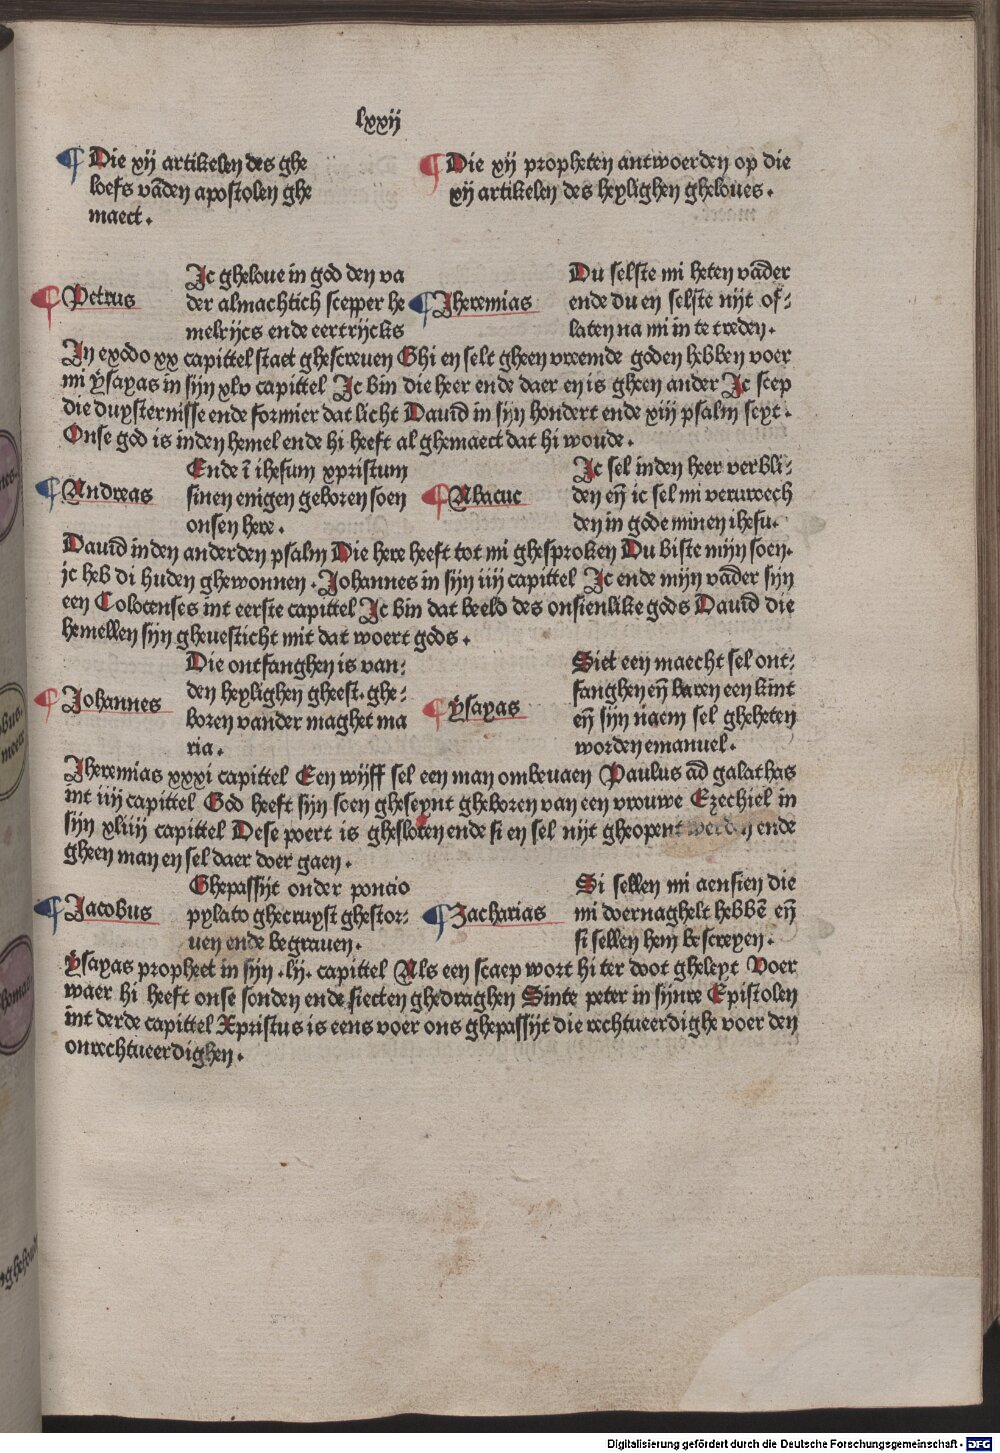 lxxij
Die xij artikelen des ghe
loefs vāden apostolen ghe
maect.
Die xij propheten antwoerden op die
xij artikelen des heylighen gheloues.
Petrus
Jc gheloue in god den va
der almachtich scepper he
melrijcs ende eertrijcks
Jheremias
Du selste mi heten vāder
ende du en selste nijt of⸗
laten na mi in te treden.
Jn exodo xx capittel staet ghescreuen Ghi en selt gheen vreemde goden hebben voer
mi ẏsayas in sijn xlv capittel Jc bin die heer ende daer en is gheen ander Jc scep
die duysternisse ende formier dat licht Dauid in sijn hondert ende xiij psalm seyt.
Onse god is inden hemel ende hi heeft al ghemaect dat hi woude.
Andreas
Ende ī ihesum xpristum
sinen enigen geboren soen
onsen here.
Abacuc
Jc sel inden heer verbli⸗
den eñ ic sel mi veruroech
den in gode minen ihesu.
Dauid in den anderden psalm Die here heeft tot mi ghesproken Du biste mijn soen.
jc heb di huden ghewonnen. Johannes in sijn iiij capittel Jc ende mijn vāder sijn
een Colocenses int eerste capittel Jc bin dat beeld des onsienlike gods Dauid die
hemellen sijn gheuesticht mit dat woert gods.
Johannes
Die ontfanghen is van⸗
den heylighen gheest. ghe⸗
boren vander maghet ma
ria.
ẏsayas
Siet een maecht sel ont⸗
fanghen eñ baren een kint
eñ sijn naem sel gheheten
worden emanuel.
Jheremias xxxi capittel Een wijff sel een man ombeuaen Paulus ad galathas
int iiij capittel God heeft sijn soen gheseynt gheboren van een vrouwe Ezechiel in
sijn xliiij capittel Dese poert is ghesloten ende si en sel nijt gheopent werden ende
gheen man en sel daer doer gaen.
Jacobus
Ghepassijt onder poncio
pylato ghecruyst ghestor⸗
uen ende begrauen.
Zacharias
Si sellen mi aensien die
mi doernaghelt hebbē eñ
si sellen hem bescreyen.
ẏsayas propheet in sijn .lij. capittel Als een scaep wort hi ter doot gheleyt Voer
waer hi heeft onse sonden ende siecten ghedraghen Sinte peter in sijnre Epistolen
int derde capittel Xpristus is eens voer ons ghepassijt die rechtueerdighe voer den
onrechtueerdighen.
Digitalisierung gefördert durch die Deutsche Forschungsgemeinschaft - DFG